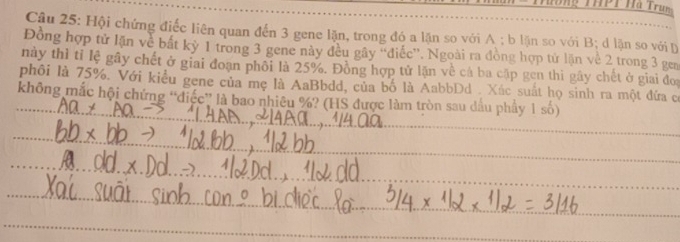 Trường THPT Hà Trung
Câu 25: Hội chứng điếc liên quan đến 3 gene lặn, trong đó a lặn so với A ; b lặn so với B; d lặn so với D
Đồng hợp tử lặn về bất kỳ 1 trong 3 gene này đều gây “điếc”. Ngoài ra đồng hợp tử lặn về 2 trong 3 gen
này thì tỉ lệ gây chết ở giai đoạn phôi là 25%. Đồng hợp tử lặn về cả ba cặp gen thì gây chết ở giai đoạ
phôi là 75%. Với kiểu gene của mẹ là AaBbdd, của bố là AabbDd . Xác suất họ sinh ra một đứa c
không mắc hội chứng “điếc” là bao nhiêu %? (HS được làm tròn sau dấu phẩy 1 số)
Aa x Aa -> 1/4AA, 2/4Aa, 1/4 aa
Bb x bb -> 1/2 Bb, 1/2 bb
dd x Dd -> 1/2Dd, 1/2 dd
Xác suất sinh con o bị điếc là 3/4 x 1/2 x 1/2 = 3/16